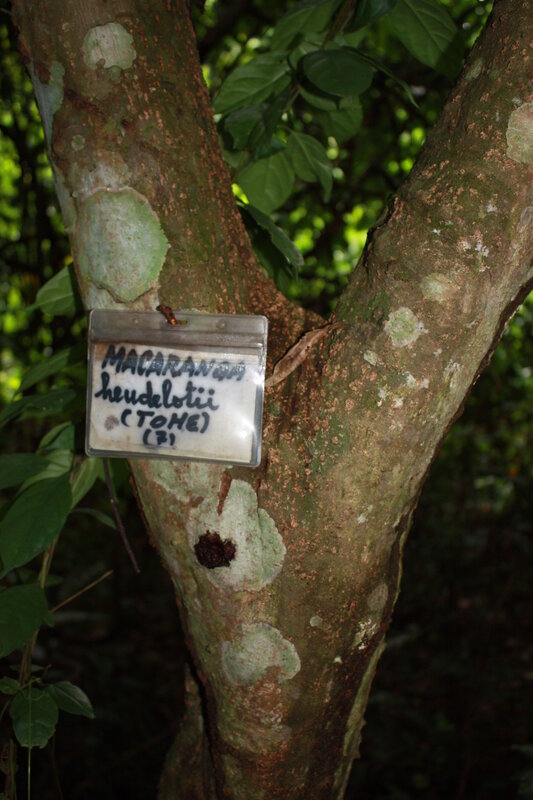 MACARANGA
heudelotii
(TOHE)
(7)